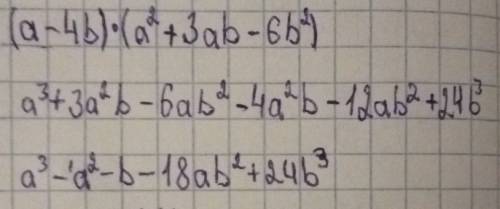 (a-4b)·(a²+3ab-6b²)
a³+3a²b-6ab²-4a²b-12ab²+24b³
a³-a²-b-18ab²+24b³